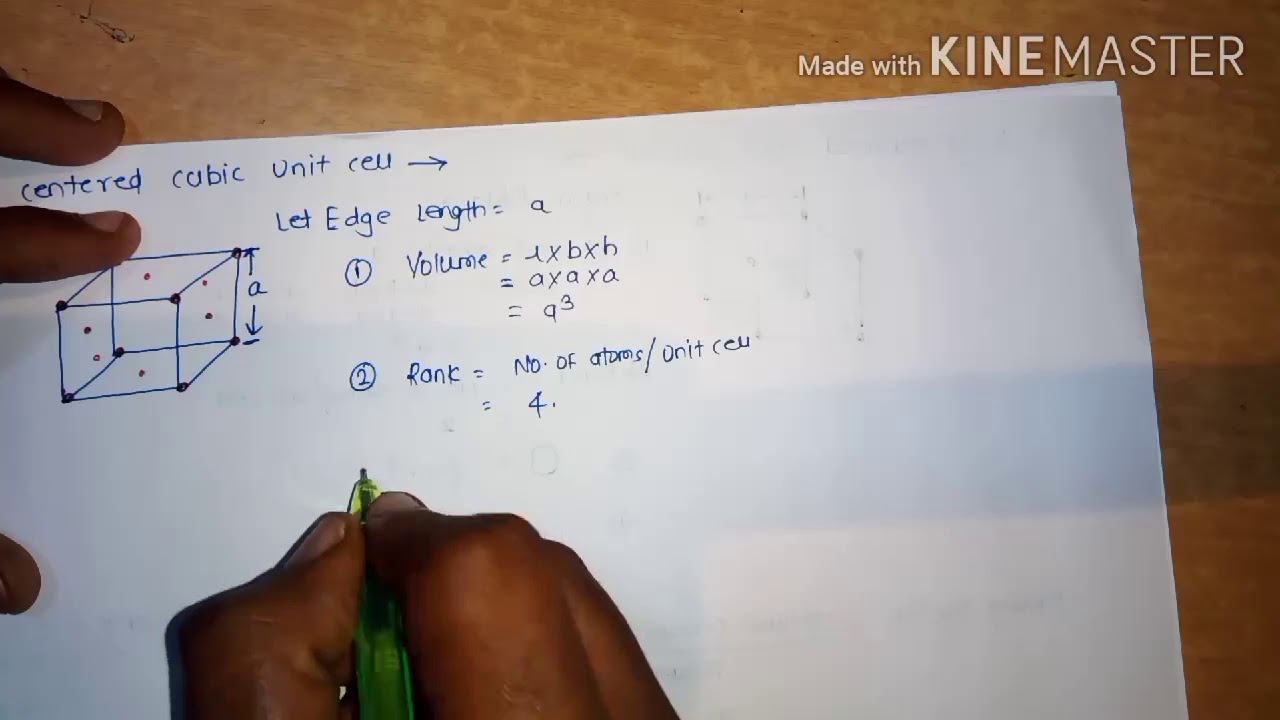 Made with KINEMASTER
centered cubic unit cell →
Let Edge Length = a
① Volume = l×b×h
= a×a×a
= a³
a
② Rank = No. of atoms/unit cell
= 4.